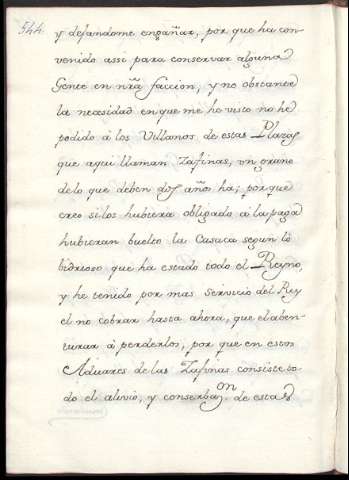 544.
y dejandome engañar, por que ha con
venido assi para conservar alguna
Gente en nrã faccion, y no obstante
la necasidad en que me ho visto no he
podido á los Villanos de estas Plazas
que aqui llaman Zafinas, un grano
de lo que deben dos años ha; porque
creo si los hubiera obligado á la paga
hubieran buelto la Casaca segun lo
bidrioso que ha estado todo el Reyno,
y he tenido por mas servicio del Rey
el no cobrar hasta ahora, que el aben
turar á perderlos, por que en estos
Aduares de las Zafinas consiste to
do el alivio, y conserbaon de estas